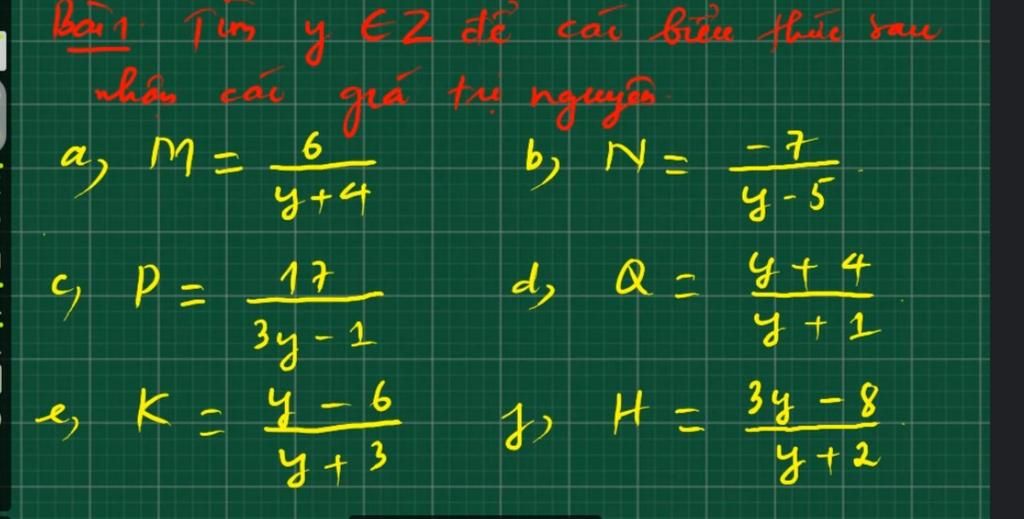 Bài 1. Tìm y ∈ Z để các biểu thức sau
nhận các giá trị nguyên.
a, M = 6/(y + 4) b, N = -7/(y - 5)
c, P = 17/(3y - 1) d, Q = (y + 4)/(y + 1)
e, K = (y - 6)/(y + 3) f, H = (3y - 8)/(y + 2)